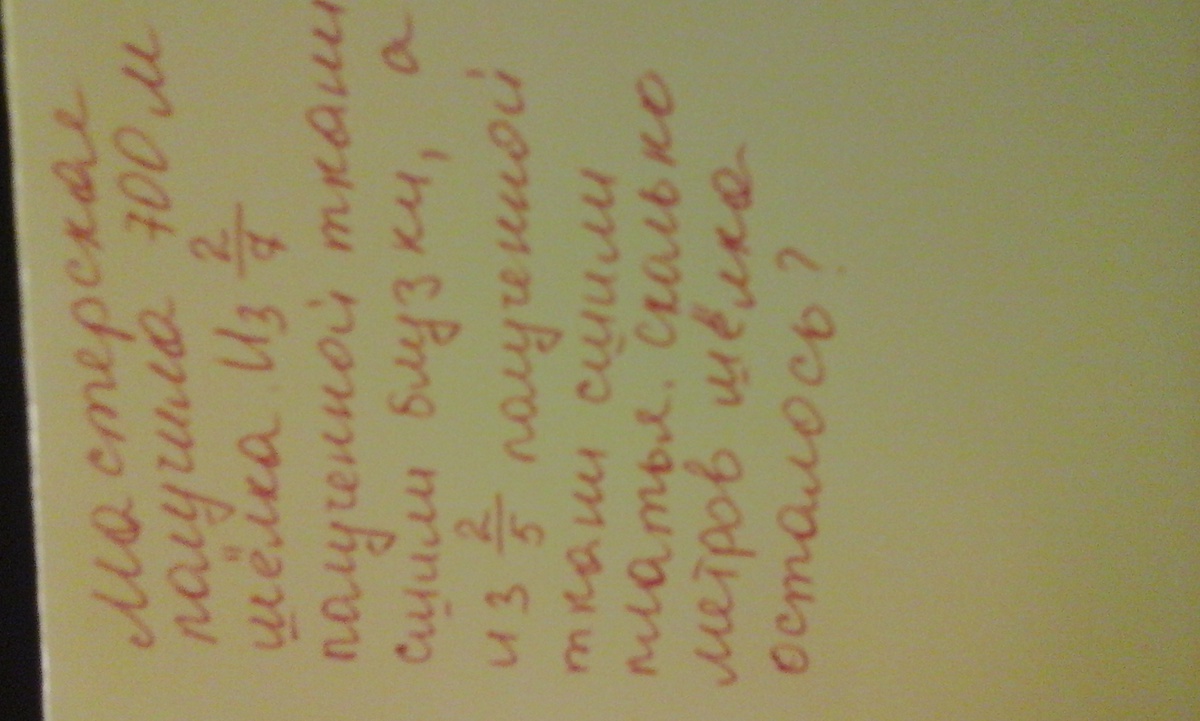 Мастерская
получила 700 м
шёлка. Из 2/7
полученной ткани
сшили блузки, а
из 2/5 полученной
ткани сшили
платья. Сколько
метров шёлка
осталось?